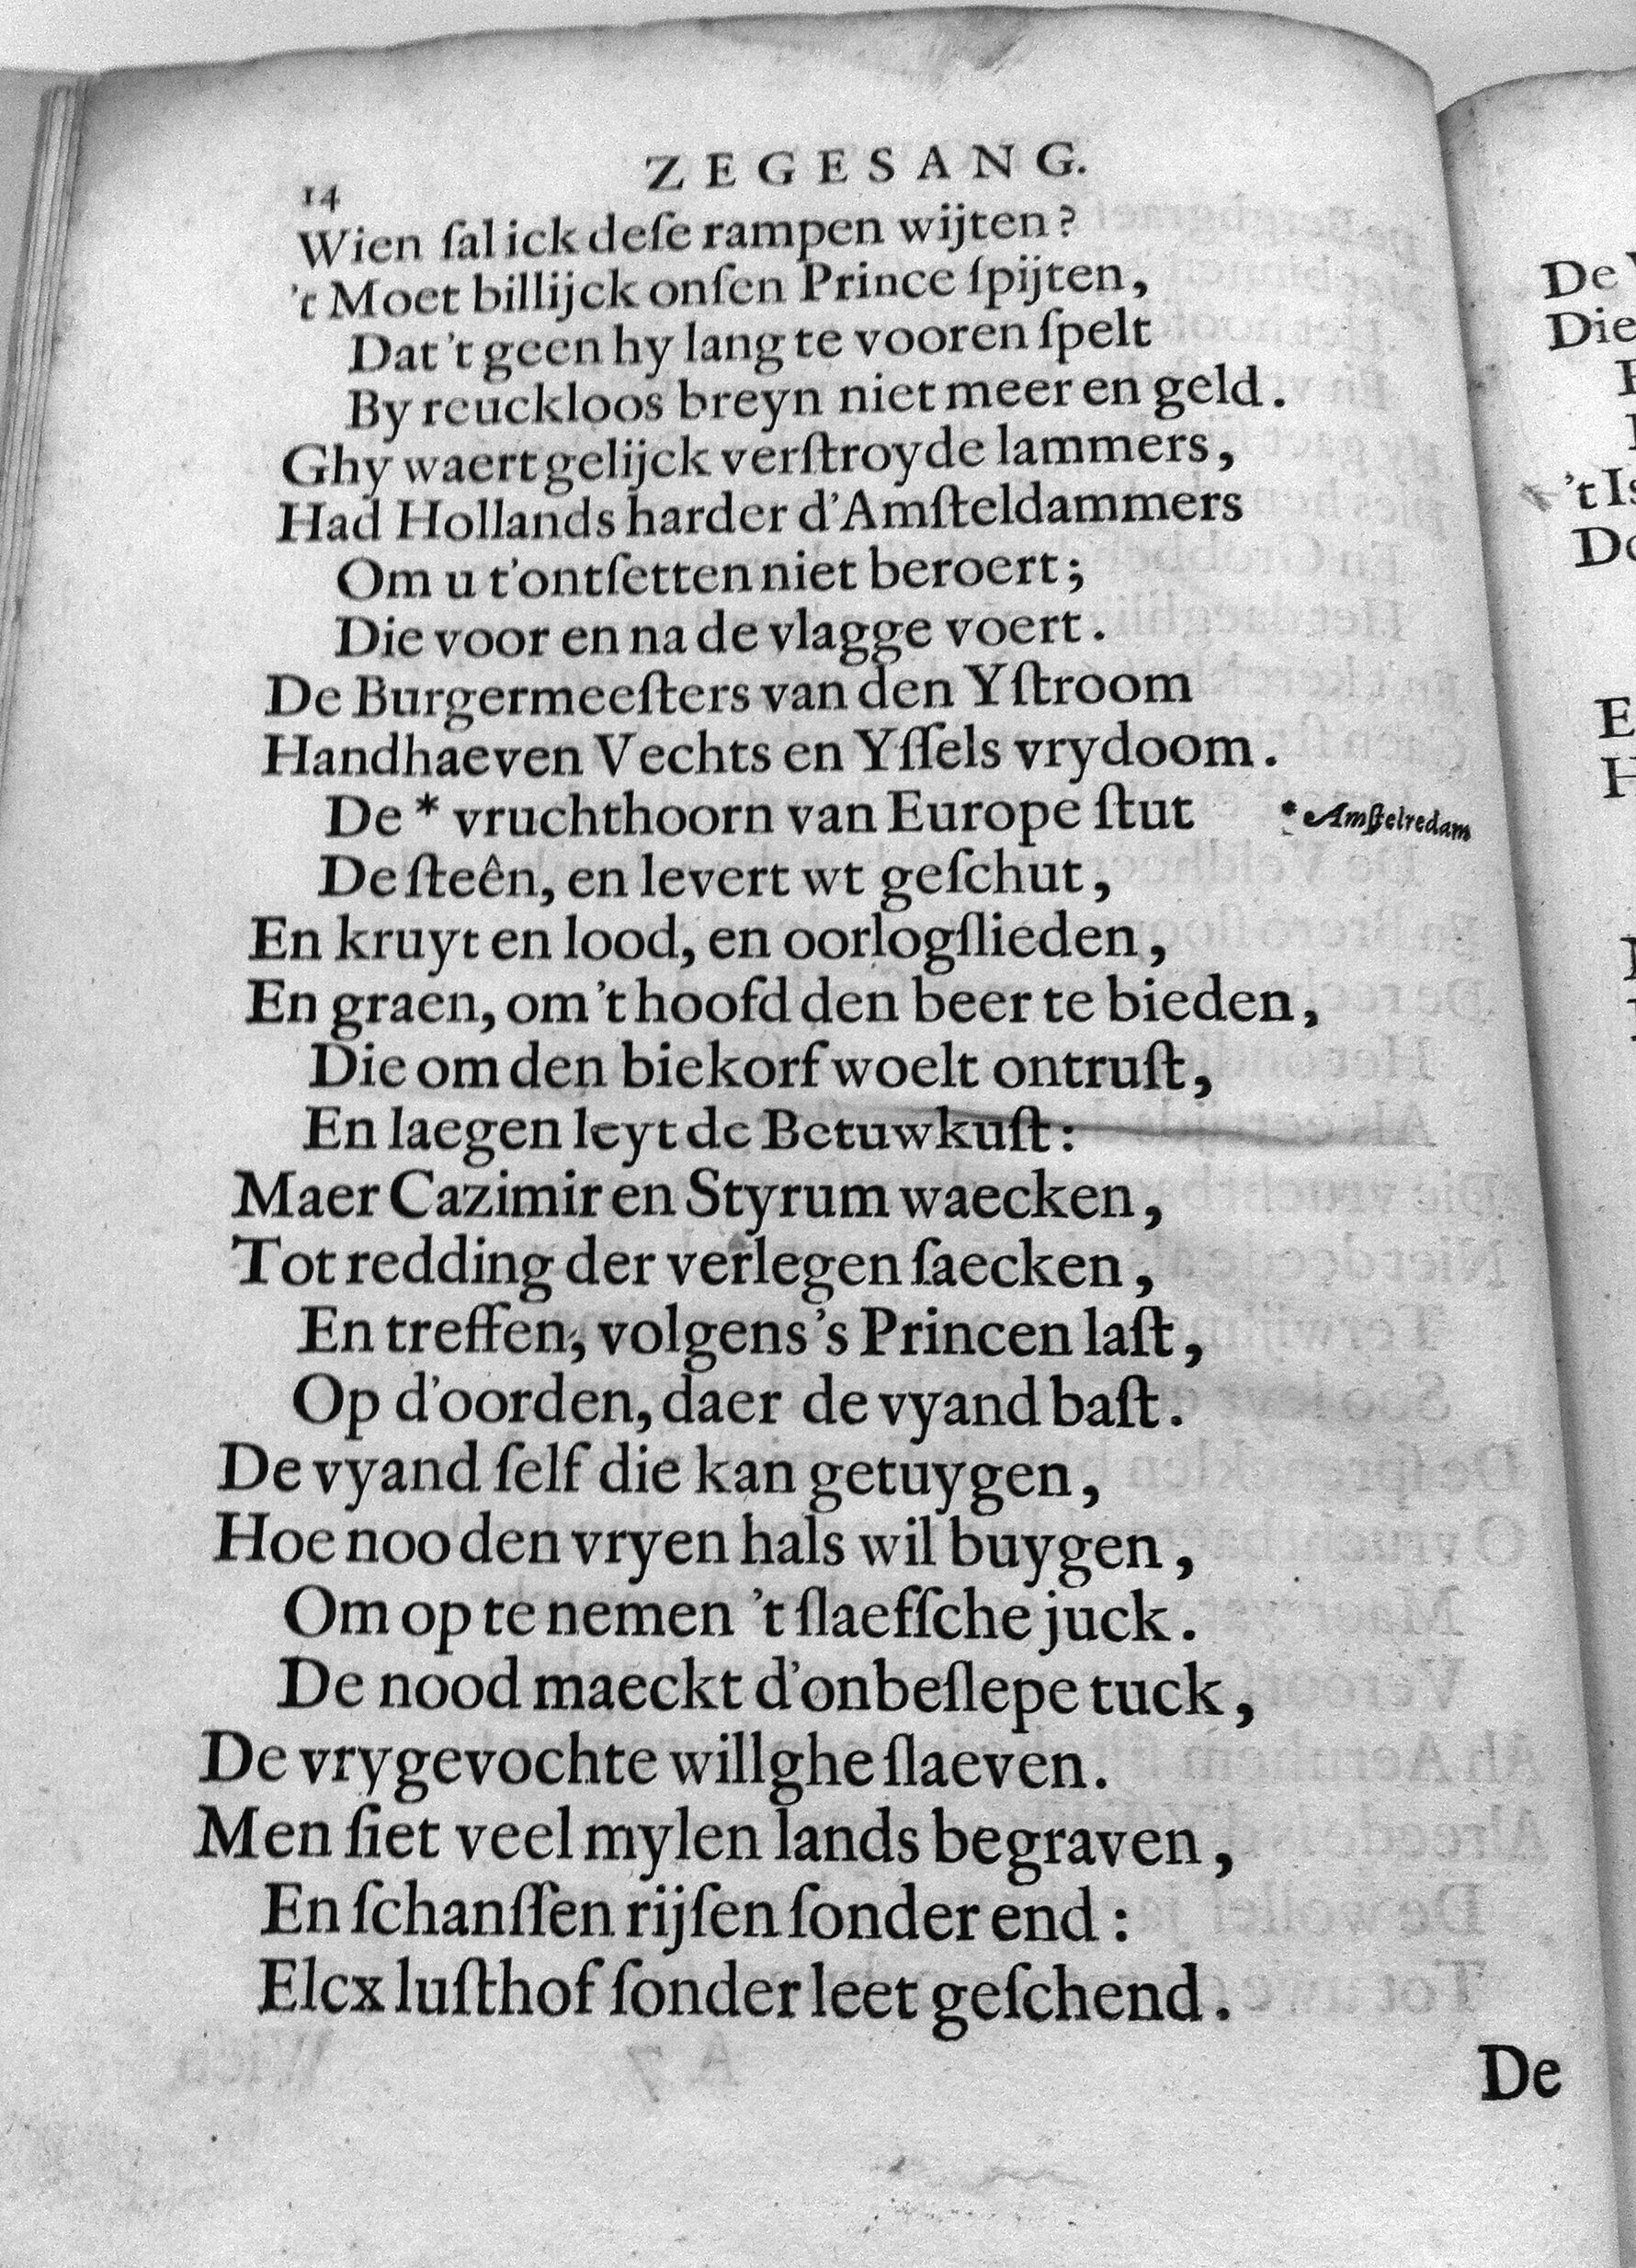 14 ZEGESANG.
Wien ſal ick deſe rampen wijten?
't Moet billijck onſen Prince ſpijten,
Dat 't geen hy lang te vooren ſpelt
By reuckloos breyn niet meer en geld.
Ghy waert gelijck verſtroyde lammers,
Had Hollands harder d'Amſteldammers
Om u t'ontſetten niet beroert;
Die voor en na de vlagge voert.
De Burgermeeſters van den Yſtroom
Handhaeven Vechts en Yſſels vrydoom.
De * vruchthoorn van Europe ſtut
* Amſtelredam
De ſteên, en levert wt geſchut,
En kruyt en lood, en oorlogſlieden,
En graen, om 't hoofd den beer te bieden,
Die om den biekorf woelt ontruſt,
En laegen leyt de Betuwkuſt:
Maer Cazimir en Styrum waecken,
Tot redding der verlegen ſaecken,
En treffen, volgens 's Princen laſt,
Op d'oorden, daer de vyand baſt.
De vyand ſelf die kan getuygen,
Hoe noo den vryen hals wil buygen,
Om op te nemen 't ſlaefſche juck.
De nood maeckt d'onbeſlepe tuck,
De vrygevochte willghe ſlaeven.
Men ſiet veel mylen lands begraven,
En ſchanſſen rijſen ſonder end:
Elcx luſthof ſonder leet geſchend.
De
De
Die
't Is